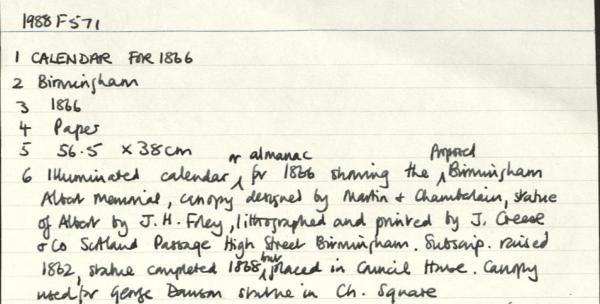 1988 F571
1 CALENDAR FOR 1866
2 Birmingham
3 1866
4 Paper
5 56.5 x 38cm
6 Illuminated calendar or almanac for 1866 showing the Proposed Birmingham
Albert Memorial, canopy designed by Martin + Chamberlain, statue
of Albert by J. H. Foley, lithographed and printed by J. Creese
& Co Scotland Passage High Street Birmingham. Subscrip. raised
1862, statue completed 1868 but placed in Council House. Canopy
used for George Dawson statue in Ch. Square